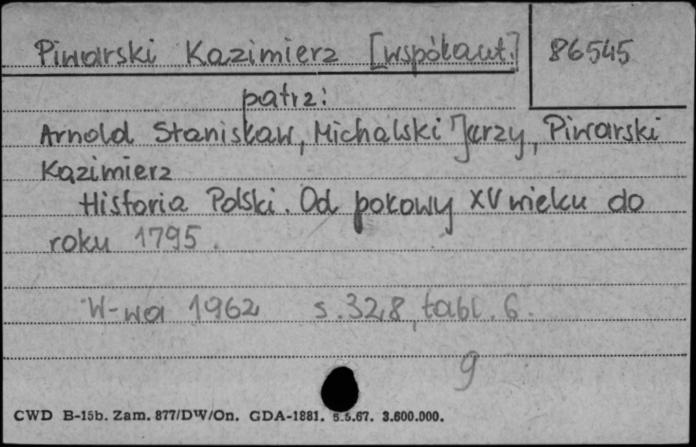 Piwarski Kazimierz [współaut.] 86545
patrz:
Arnold Stanisław, Michalski Jerzy, Piwarski
Kazimierz
Historia Polski. Od połowy XV wieku do
roku 1795.
W-wa 1962 s. 328, tabl. 6.
g
CWD B-15b. Zam. 877/DW/On. GDA-1881. 5.5.67. 3.600.000.